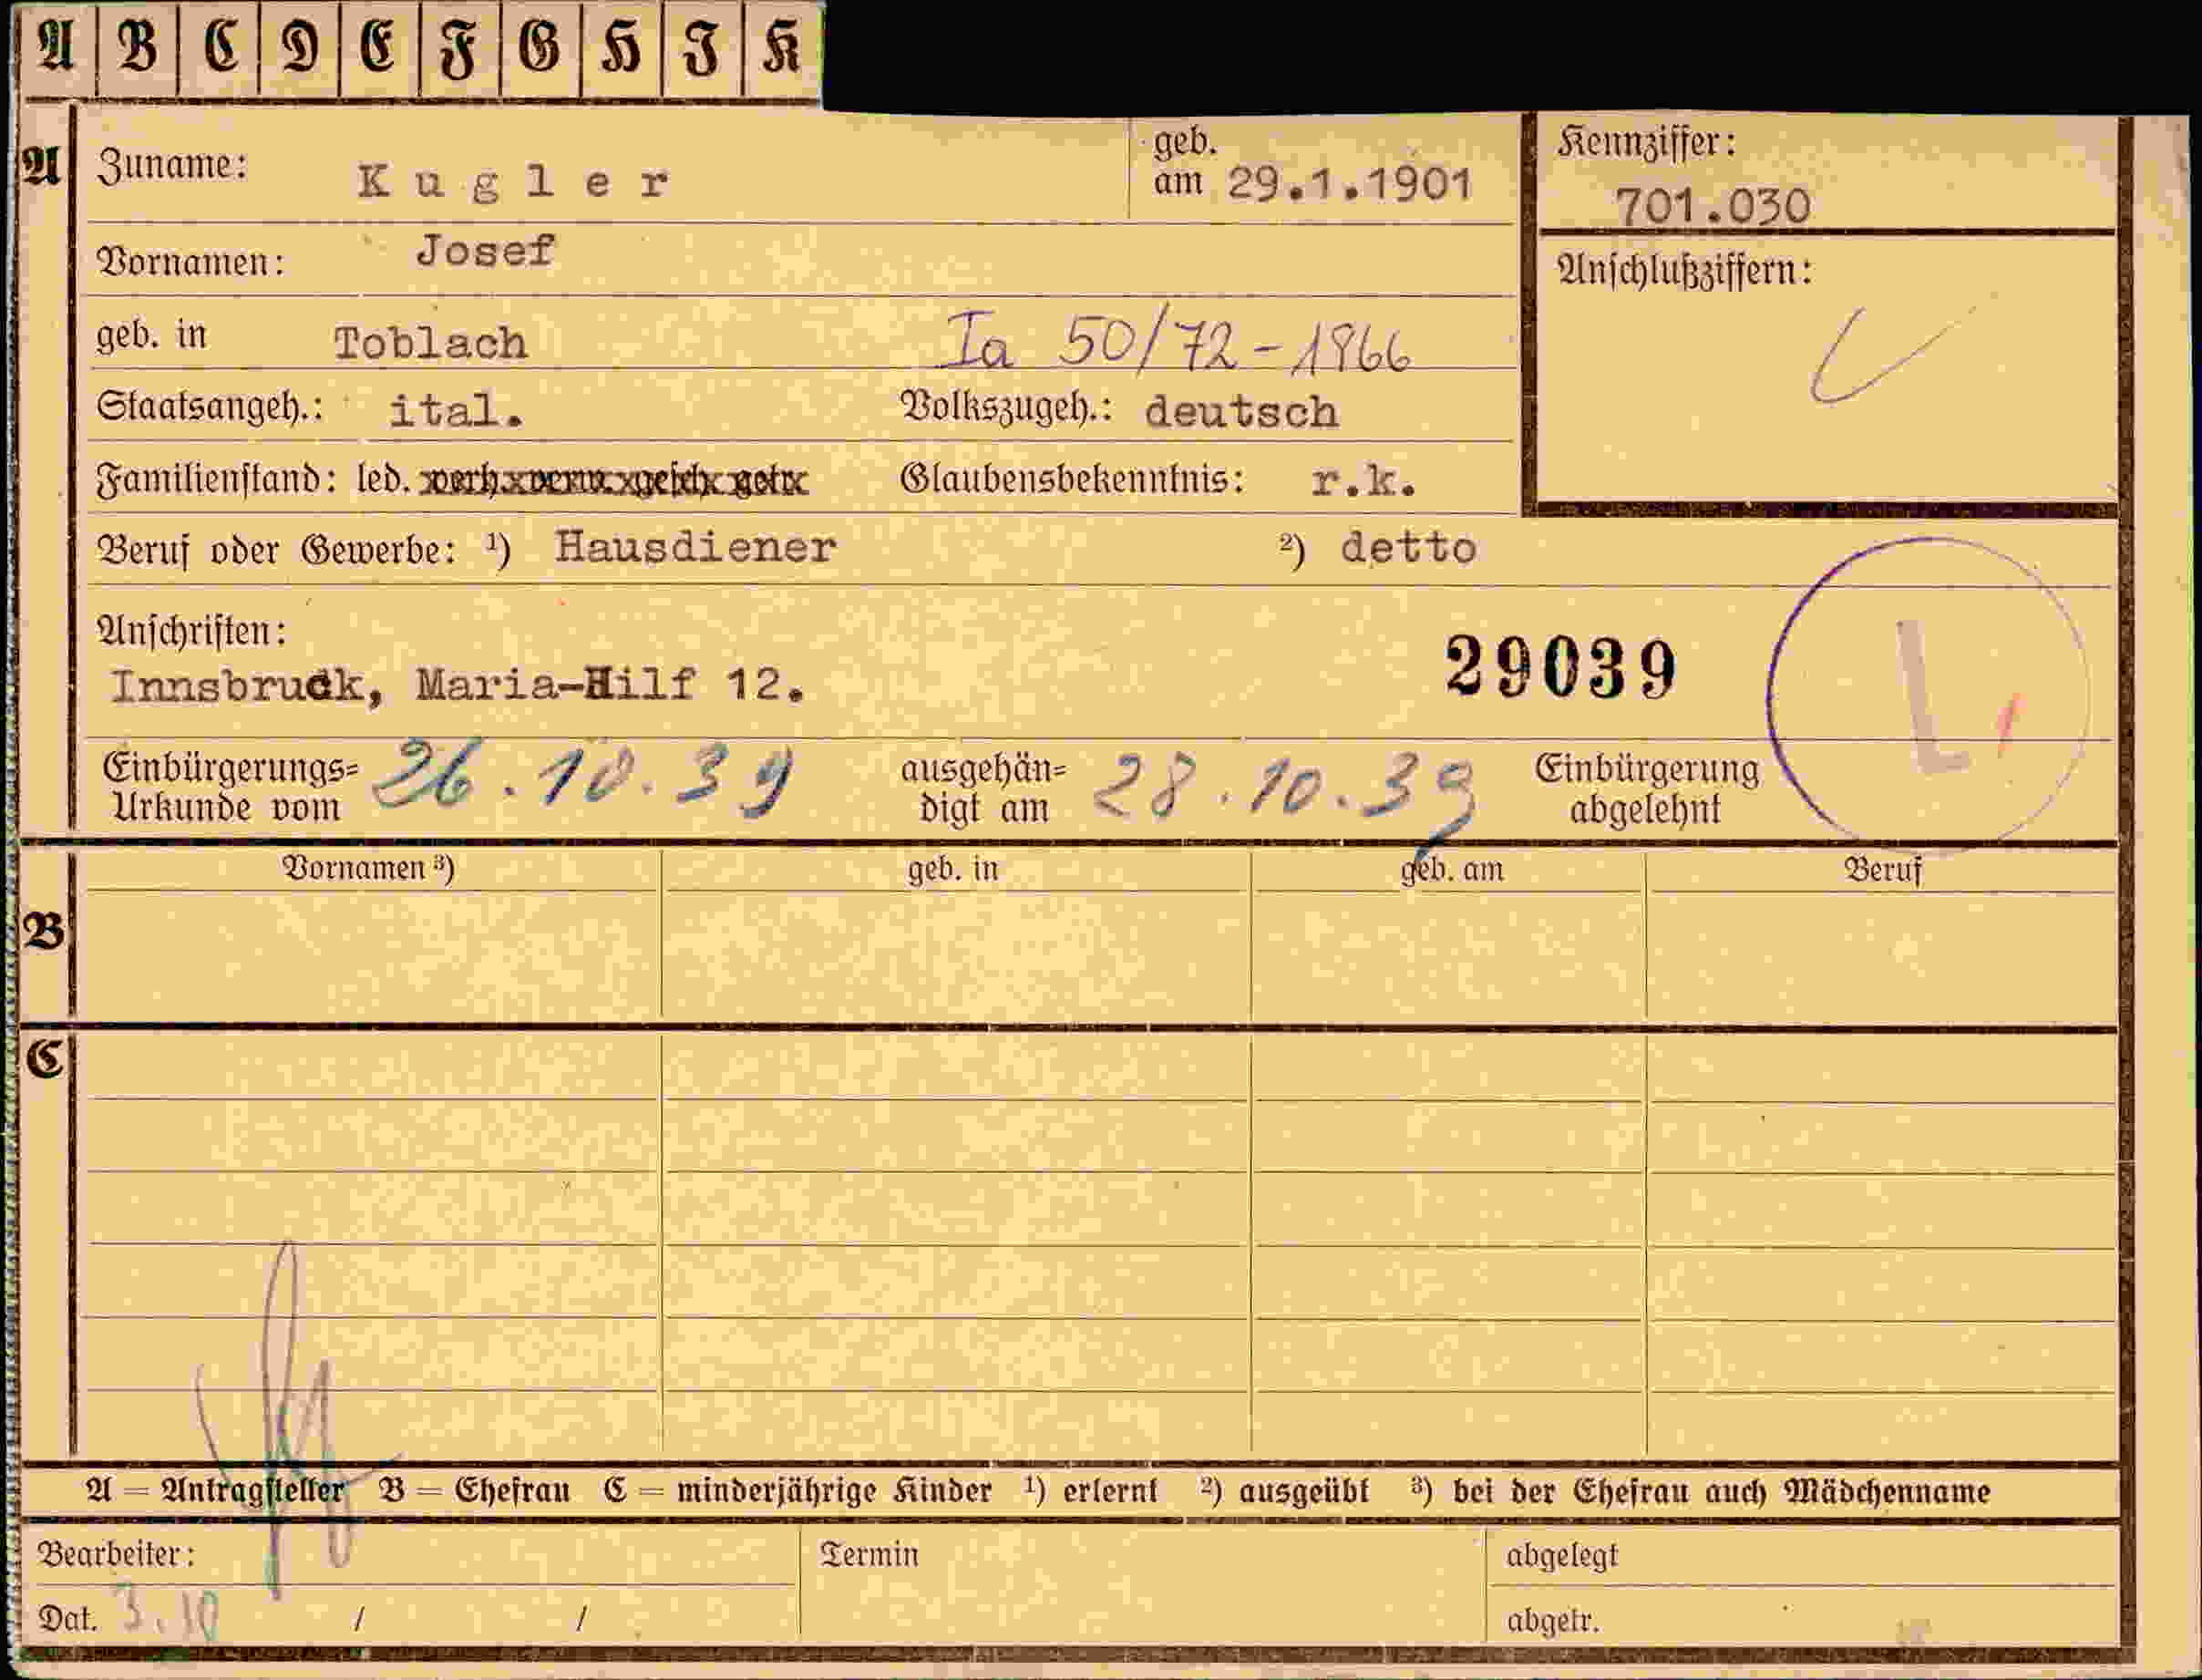 A B C D E F G H I K
A Zuname: Kugler geb. am 29.1.1901 Kennziffer: 701.030
Vornamen: Josef Anschlußziffern:
geb. in Toblach Ia 50/72-1966
Staatsangeh.: ital. Volkszugeh.: deutsch
Familienstand: led. verh. verw. gesch. getr. Glaubensbekenntnis: r.k.
Beruf oder Gewerbe: ¹) Hausdiener ²) detto
Anschriften:
Innsbruck, Maria-Hilf 12. 29039 L
Einbürgerungs= Urkunde vom 26.10.39 ausgehän= digt am 28.10.39 Einbürgerung abgelehnt
Vornamen ³) geb. in geb. am Beruf
B
C
A = Antragsteller B = Ehefrau C = minderjährige Kinder ¹) erlernt ²) ausgeübt ³) bei der Ehefrau auch Mädchenname
Bearbeiter: Termin abgelegt
Dat. 3.10 / / abgetr.